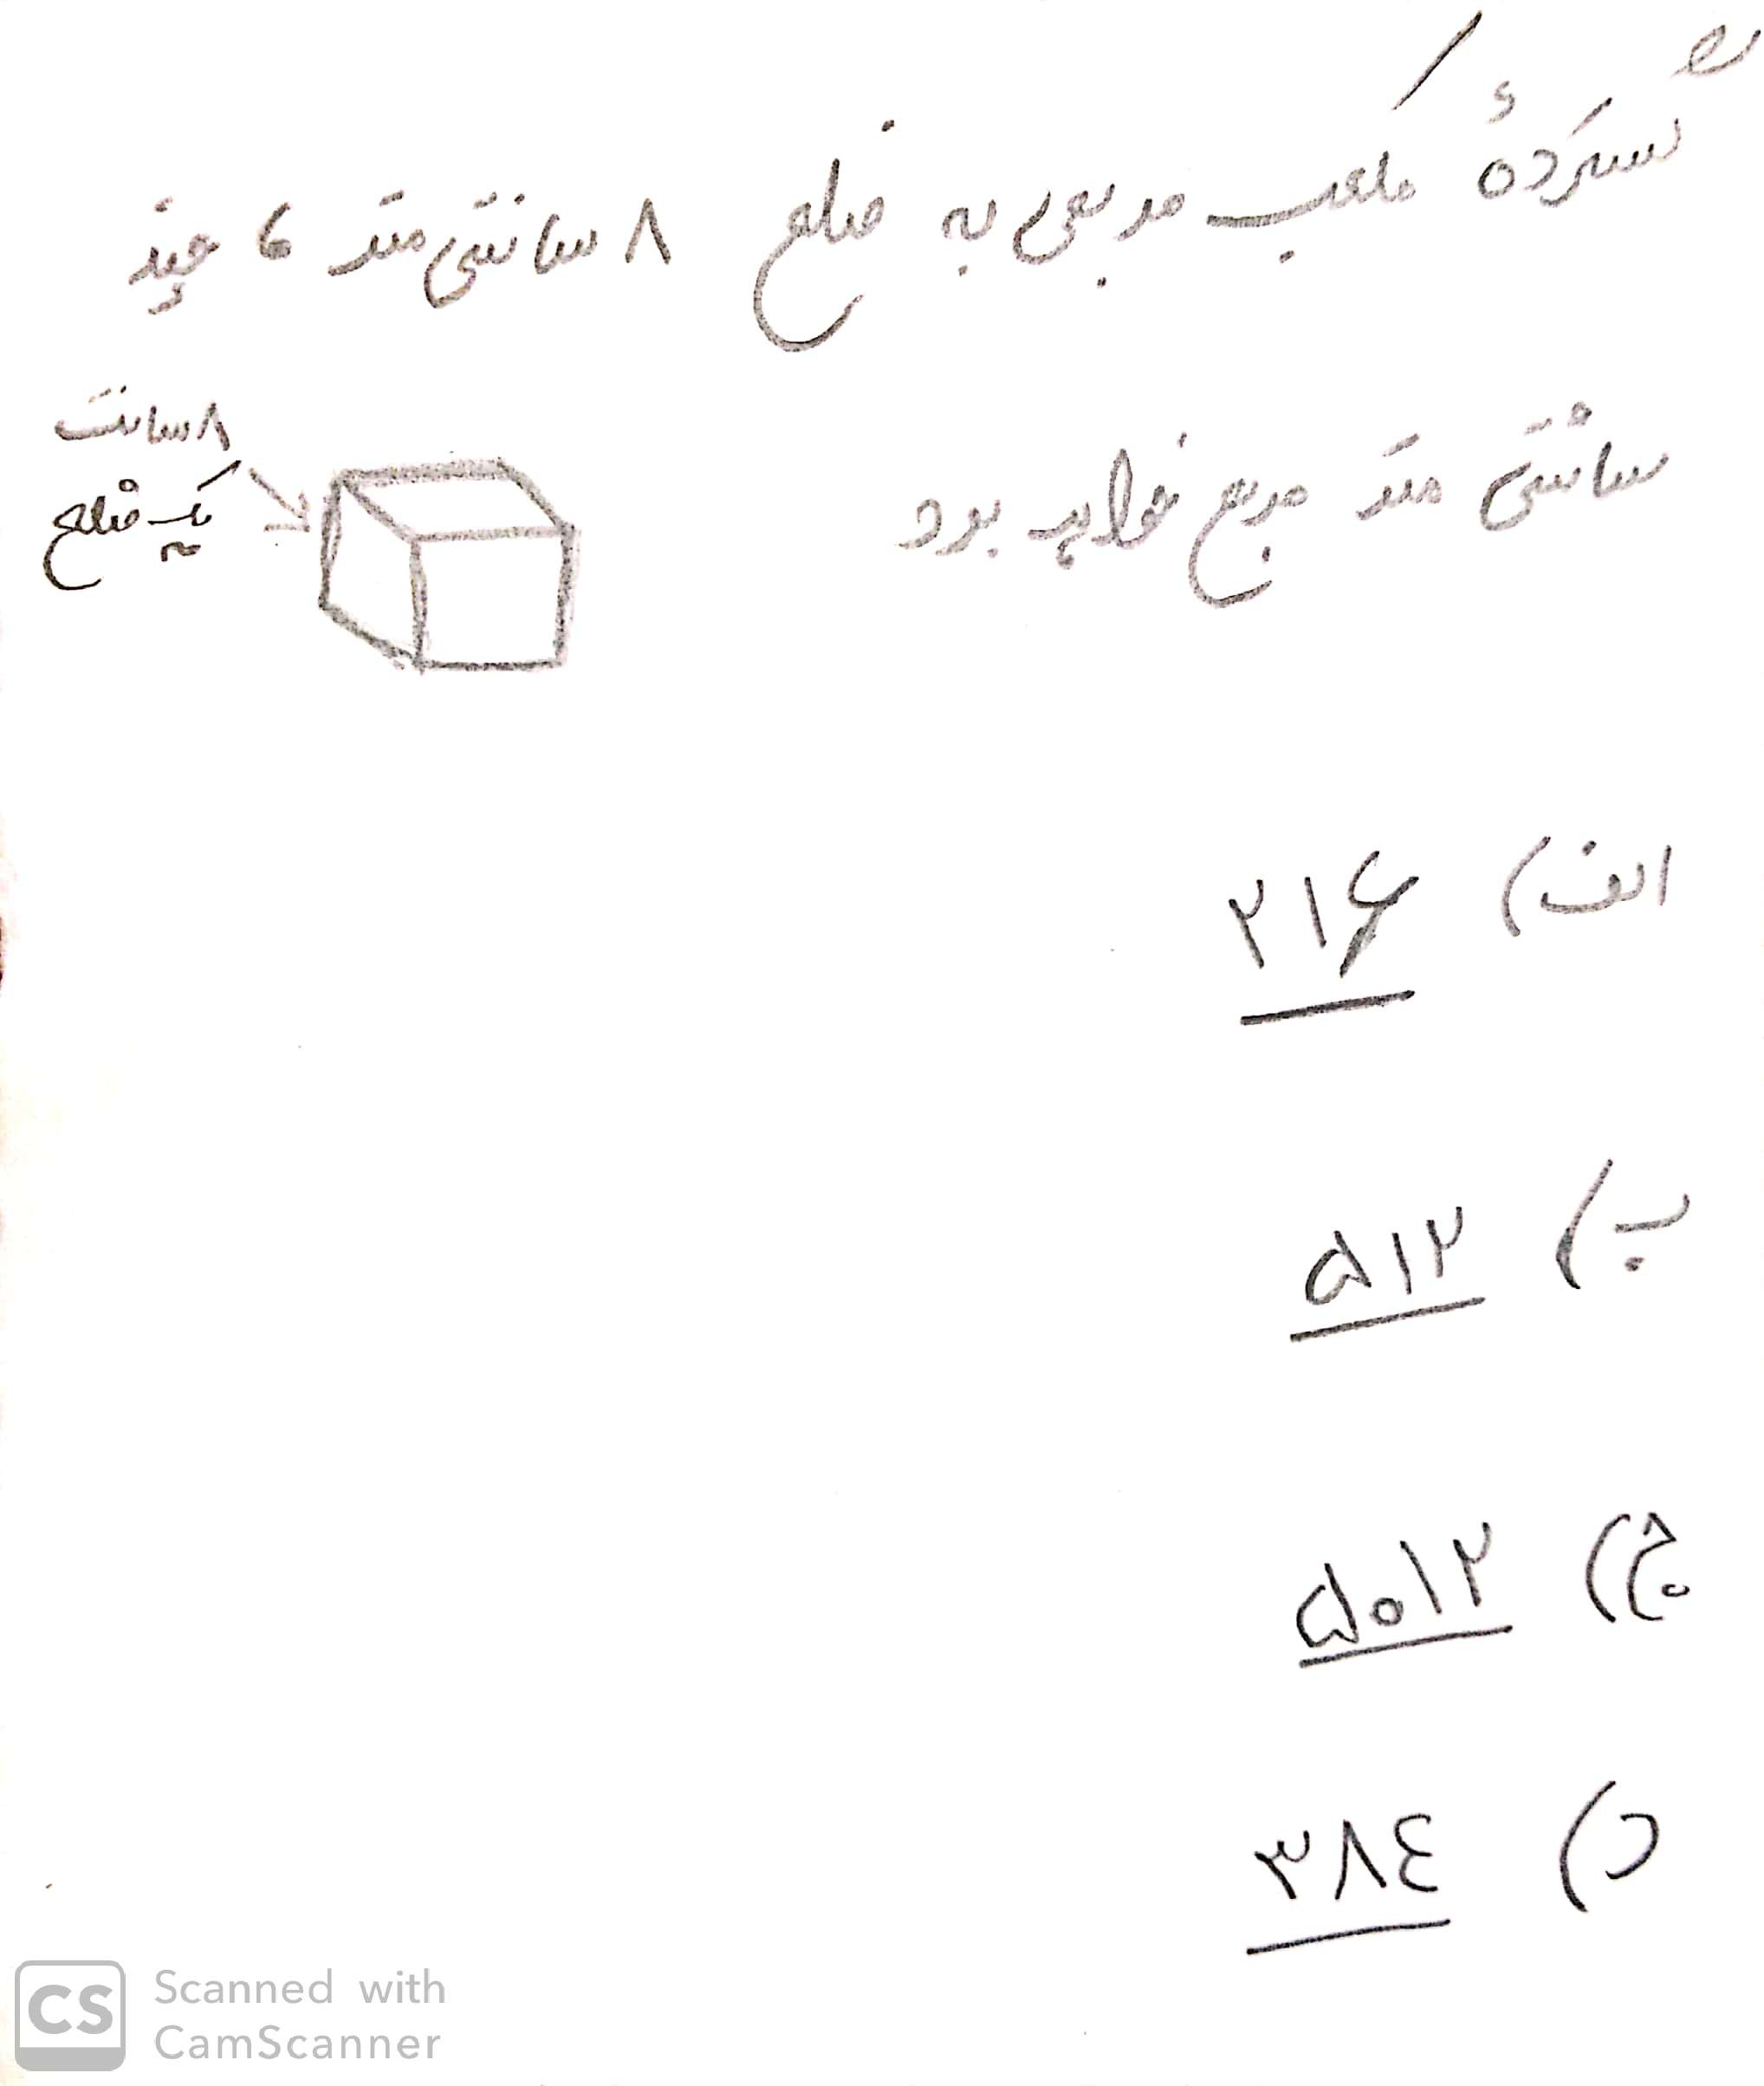 گستردهٔ مکعب مربعی به ضلع ۸ سانتی متر ، چند
سانتی متر مربع خواهد بود
۸ سانت
یک ضلع
الف) ۲۱۶
ب) ۵۱۲
ج) ۵۰۱۲
د) ۳۸٤
CS
Scanned with
CamScanner